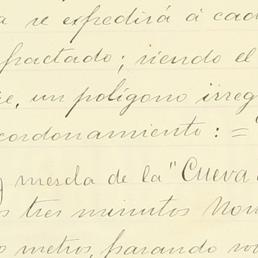 se expedirá á cad
pactado; siendo el
, un polígono irreg
cordonamiento: =
mesda de la "Cueva
s tres minutos Nor
metros, pasando